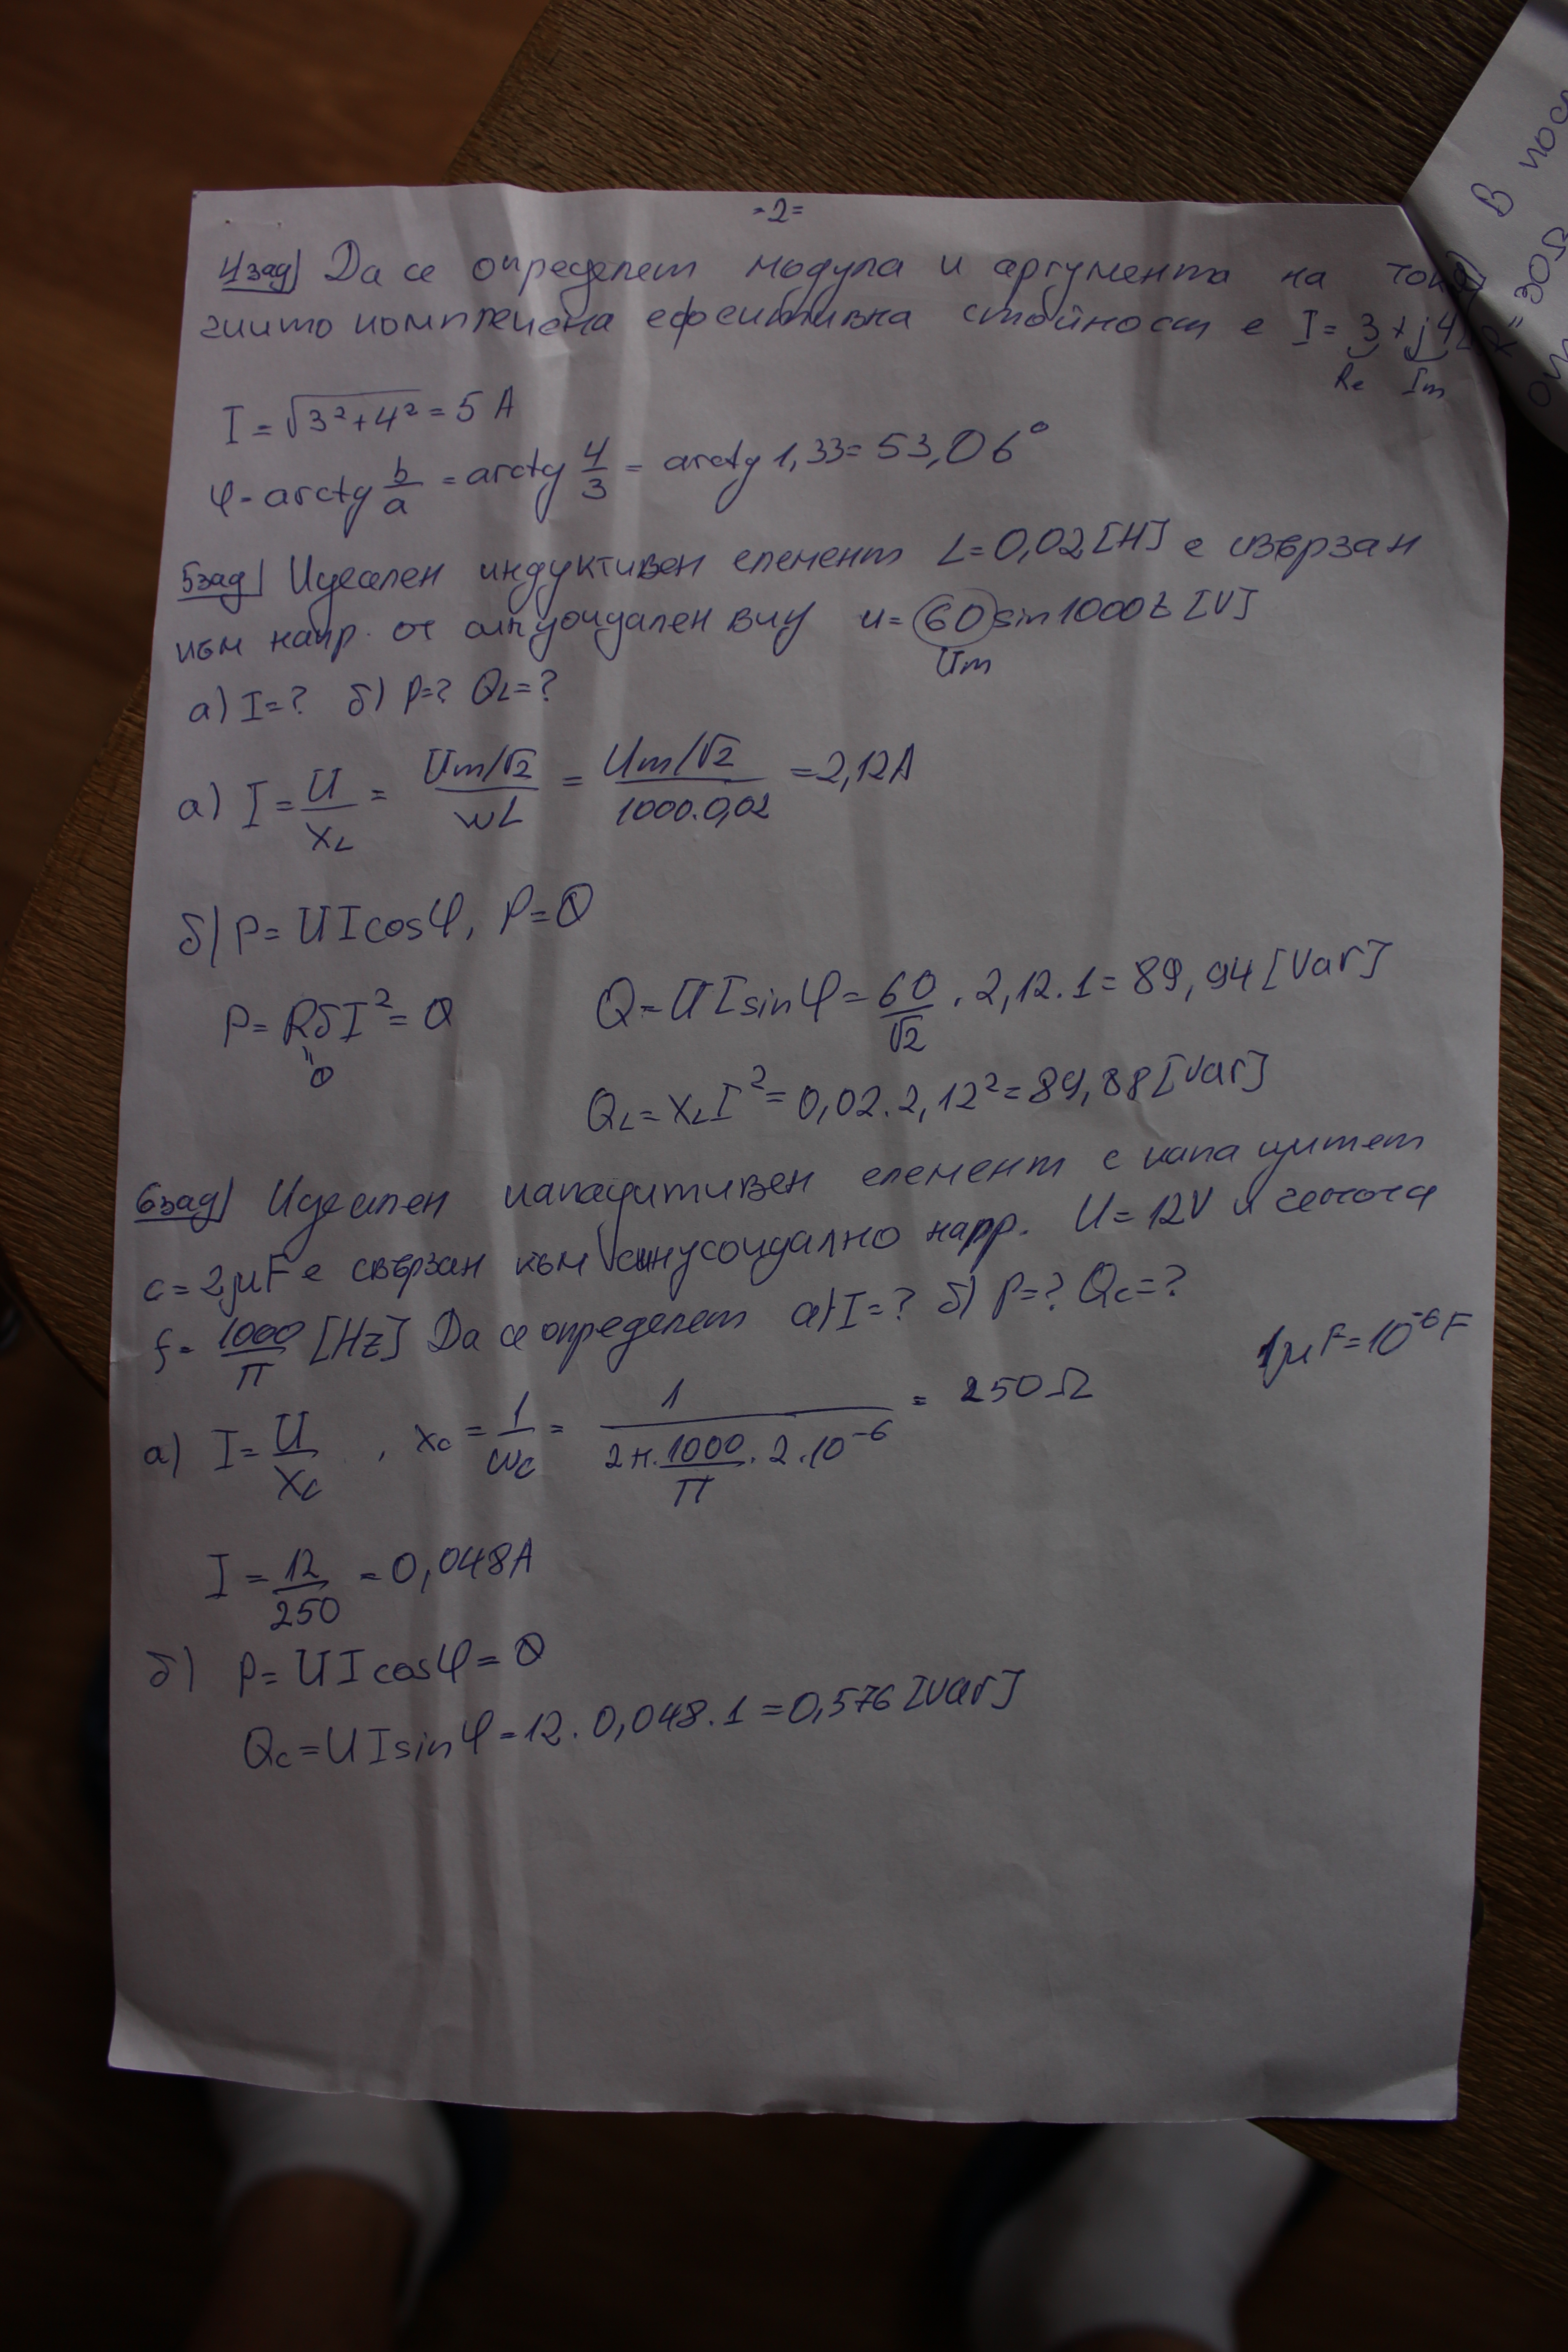 =2=
4зад) Да се определят модула и аргумента на тока
чиито комплексна ефективна стойност е I = 3 + j4
Re Im
I = √3²+4² = 5 A
φ = arctg b/a = arctg 4/3 = arctg 1,33 = 53,06°
5зад) Идеален индуктивен елемент L=0,02[H] е свързан
към напр. от синусоидален вид u = 60 sin1000t [V]
Um
а) I=? б) P=? QL=?
а) I = U/XL = Um/√2 / ωL = Um/√2 / 1000.0,02 = 2,12A
б) P= UIcosφ, P=0
P= RбI² = 0
"
0
Q = UIsinφ = 60/√2 . 2,12.1 = 89,94 [Var]
QL = XL I² = 0,02.2,12² = 89,88 [Var]
6зад) Идеален капацитивен елемент с капацитет
c = 2μF е свързан към синусоидално напр. U = 12V и честота
f = 1000/π [Hz] Да се определят а) I=? б) P=? Qc=?
1μF = 10⁻⁶F
а) I = U/Xc , Xc = 1/ωc = 1 / 2π.1000/π.2.10⁻⁶ = 250Ω
I = 12/250 = 0,048A
б) P= UIcosφ = 0
Qc = UIsinφ = 12.0,048.1 = 0,576 [Var]
В
R=30Ω